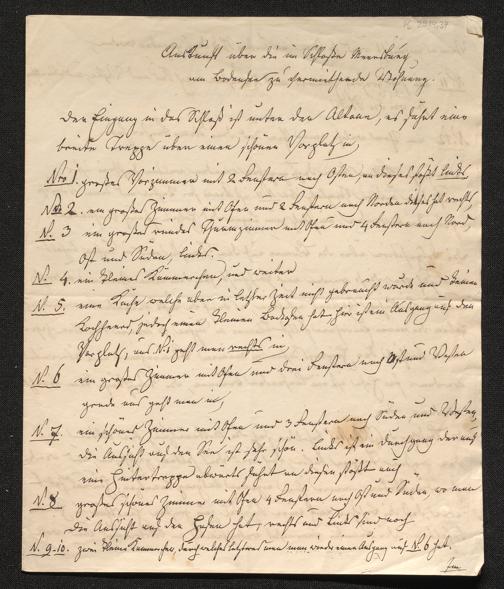 Auskunft über die im Schloße Meersburg
am Bodensee zu vermiethende Wohnung.
Der Eingang in das Schloß ist unter dem Altane, es führt eine
breite Treppe über einen schönen Vorplatz in,
Nro 1. großes Vorzimmer mit 2 Fenstern nach Osten, an dieses stößt links
Nro 2. ein großes Zimmer mit Ofen und 2 Fenstern nach Norden dieses hat rechts
N. 3 ein großes rundes Thurmzimmer mit Ofen und 4 Fenstern nach Nord,
Ost und Süden, links.
N. 4. ein kleines Kämmerchen, und weiter
N. 5. eine Küche welche aber in letzter Zeit nicht gebraucht wurde und keinen
Kochheerd, jedoch einen kleinen Backofen hat, hier ist ein Ausgang auf den
Vorplatz, aus N. 1 geht man rechts in,
N. 6 ein großes Zimmer mit Ofen und drei Fenstern nach Ost und Westen
grade aus geht man in,
N. 7. ein schönes Zimmer mit Ofen und 3 Fenstern nach Süden und Westen,
die Aussicht auf den See ist sehr schön. Links ist ein Durchgang der auf
eine Hintertreppe abwärts führt an diesen stößt auch
N. 8 großes schönes Zimmer mit Ofen 4 Fenstern nach Ost und Süden, wo man
die Aussicht auf den Hafen hat, rechts und links sind noch
N. 9-10. zwei kleine Kämmerchen, durch welches letzteres man wieder einen Ausgang nach N. 6 hat.